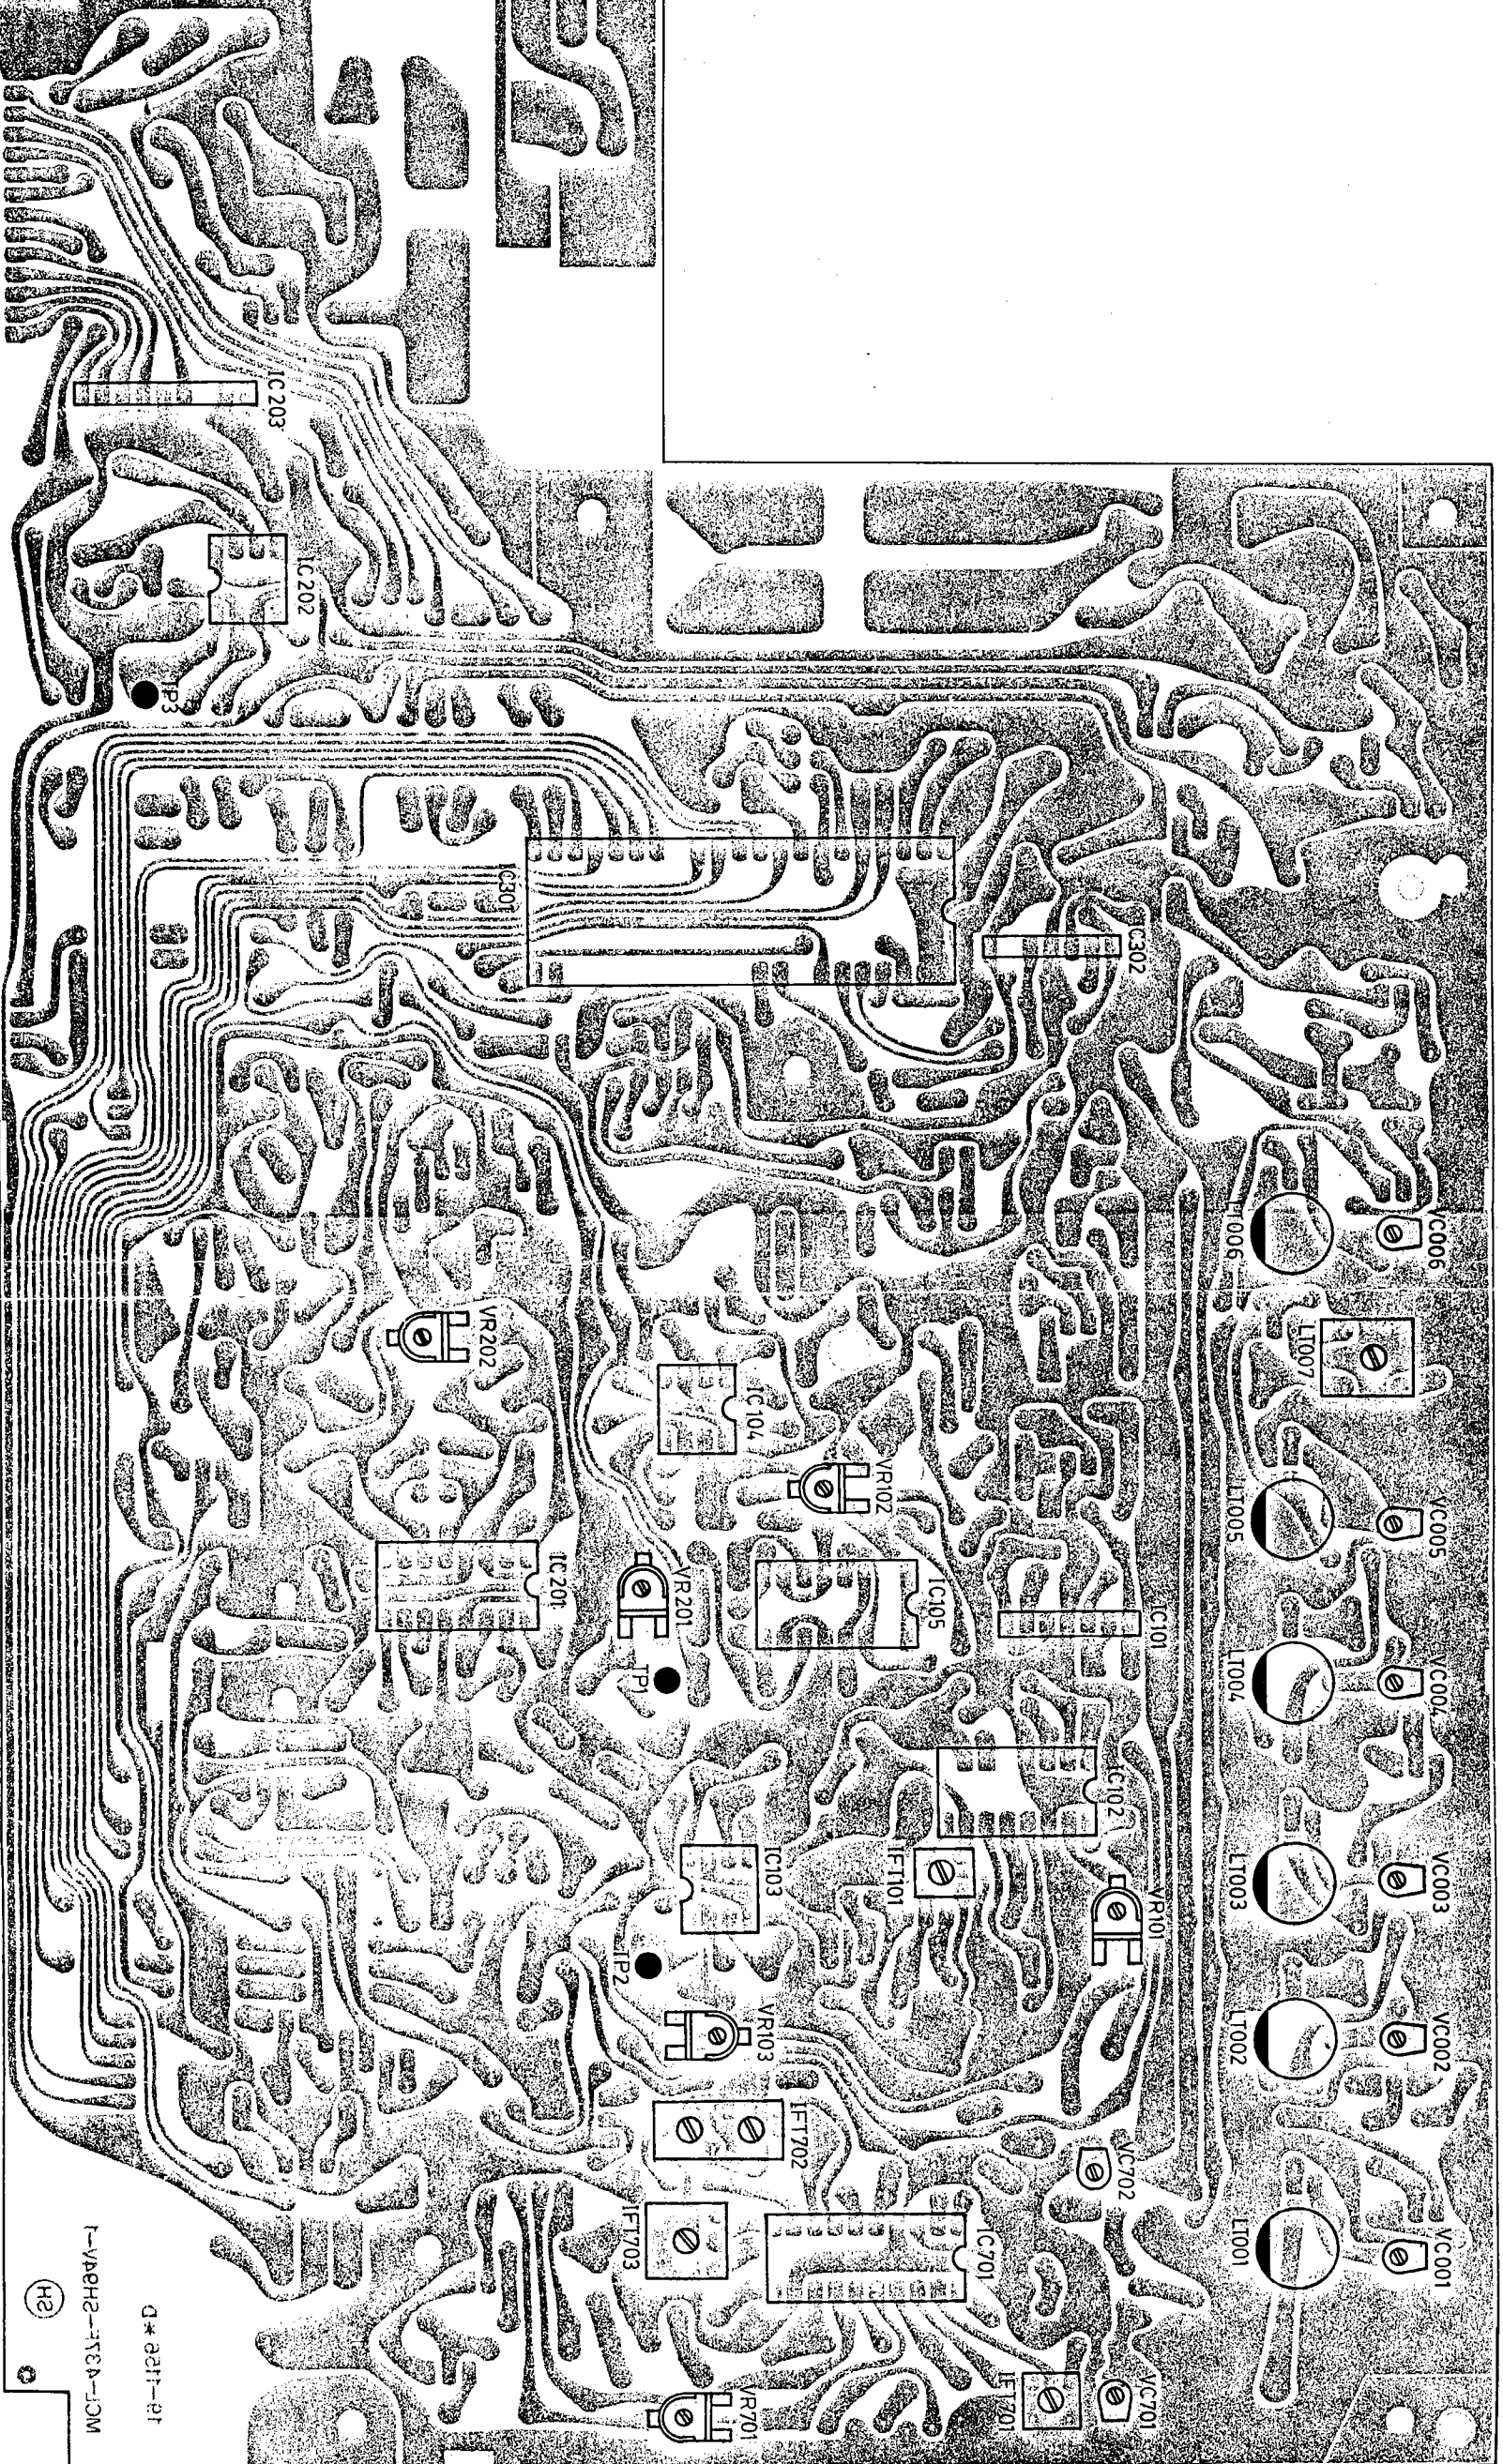 IC203
IC202
TP3
IC301
IC302
VC006
LT006
LT007
VR202
IC104
VR102
VC005
LT005
IC201
VR201
IC105
IC101
TP1
VC004
LT004
IC102
IC103
IFT101
VR101
VC003
LT003
TP2
VR103
VC002
LT002
IFT702
VC702
IFT703
IC701
VC001
LT001
VR701
IFT701
VC701